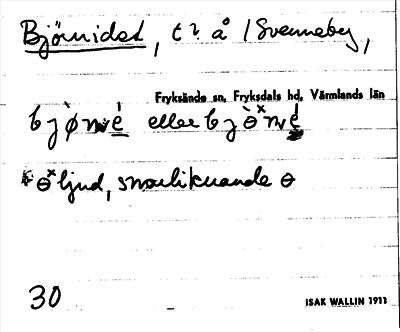 Björnidet, t ? å / Svenneby,
Fryksände sn, Fryksdals hd, Värmlands län
eller
ljud, snarliknande ɵ
30
ISAK WALLIN 1911